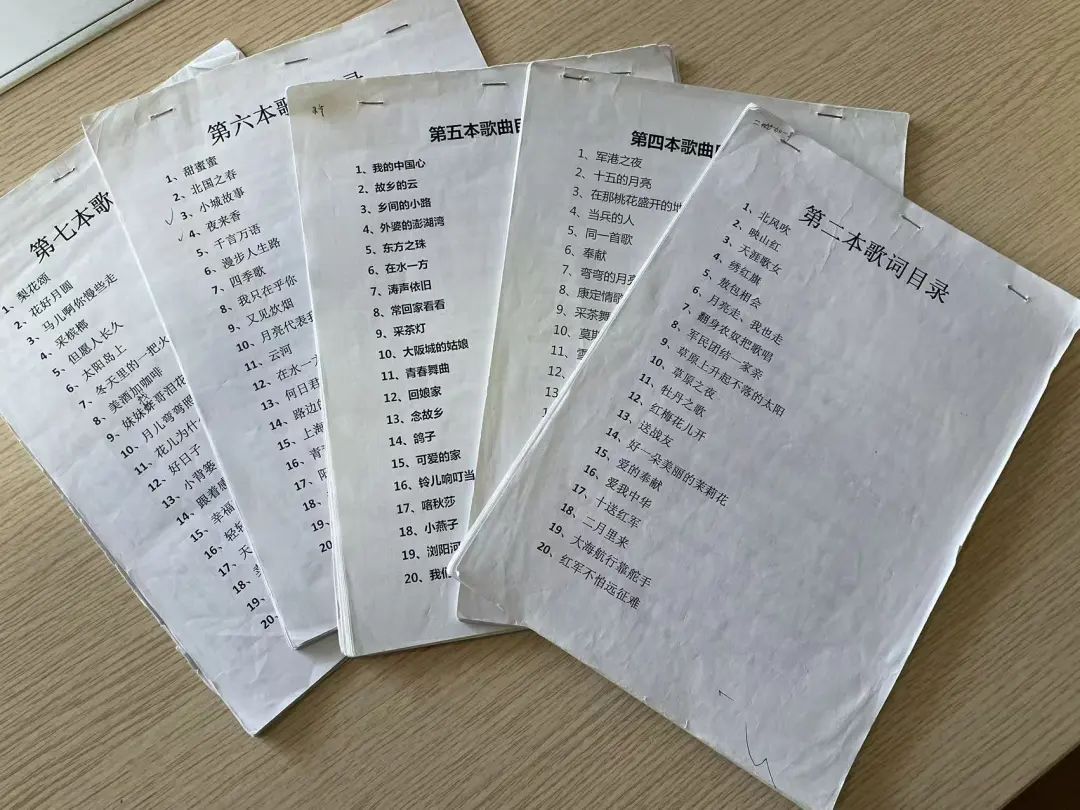 第七本歌
1、梨花颂
2、花好月圆
3、马儿啊你慢些走
4、采槟榔
5、但愿人长久
6、太阳岛上
7、冬天里的一把火
8、美酒加咖啡
9、妹妹
10、月儿弯弯照
11、花儿为什
12、好日子
13、小背篓
14、跟着
15、幸福
16、轻轻
17、天
18、
19、
20、
第六本歌 录
1、甜蜜蜜
2、北国之春
3、小城故事
4、夜来香
5、千言万语
6、漫步人生路
7、四季歌
8、我只在乎你
9、又见炊烟
10、月亮代表我
11、云河
12、在水一方
13、何日君
14、路边的
15、上海
16、青
17、阳
18、
19、
20
第五本歌曲目
1、我的中国心
2、故乡的云
3、乡间的小路
4、外婆的澎湖湾
5、东方之珠
6、在水一方
7、涛声依旧
8、常回家看看
9、采茶灯
10、大阪城的姑娘
11、青春舞曲
12、回娘家
13、念故乡
14、鸽子
15、可爱的家
16、铃儿响叮当
17、喀秋莎
18、小燕子
19、浏阳河
20、我们
第四本歌曲
1、军港之夜
2、十五的月亮
3、在那桃花盛开的地
4、当兵的人
5、同一首歌
6、奉献
7、弯弯的月亮
8、康定情歌
9、采茶舞
10、莫斯
11、雪
12、
13
14
第二本歌词目录
1、北风吹
2、映山红
3、天涯歌女
4、绣红旗
5、敖包相会
6、月亮走、我也走
7、翻身农奴把歌唱
8、军民团结一家亲
9、草原上升起不落的太阳
10、草原之夜
11、牡丹之歌
12、红梅花儿开
13、送战友
14、好一朵美丽的茉莉花
15、爱的奉献
16、爱我中华
17、十送红军
18、二月里来
19、大海航行靠舵手
20、红军不怕远征难